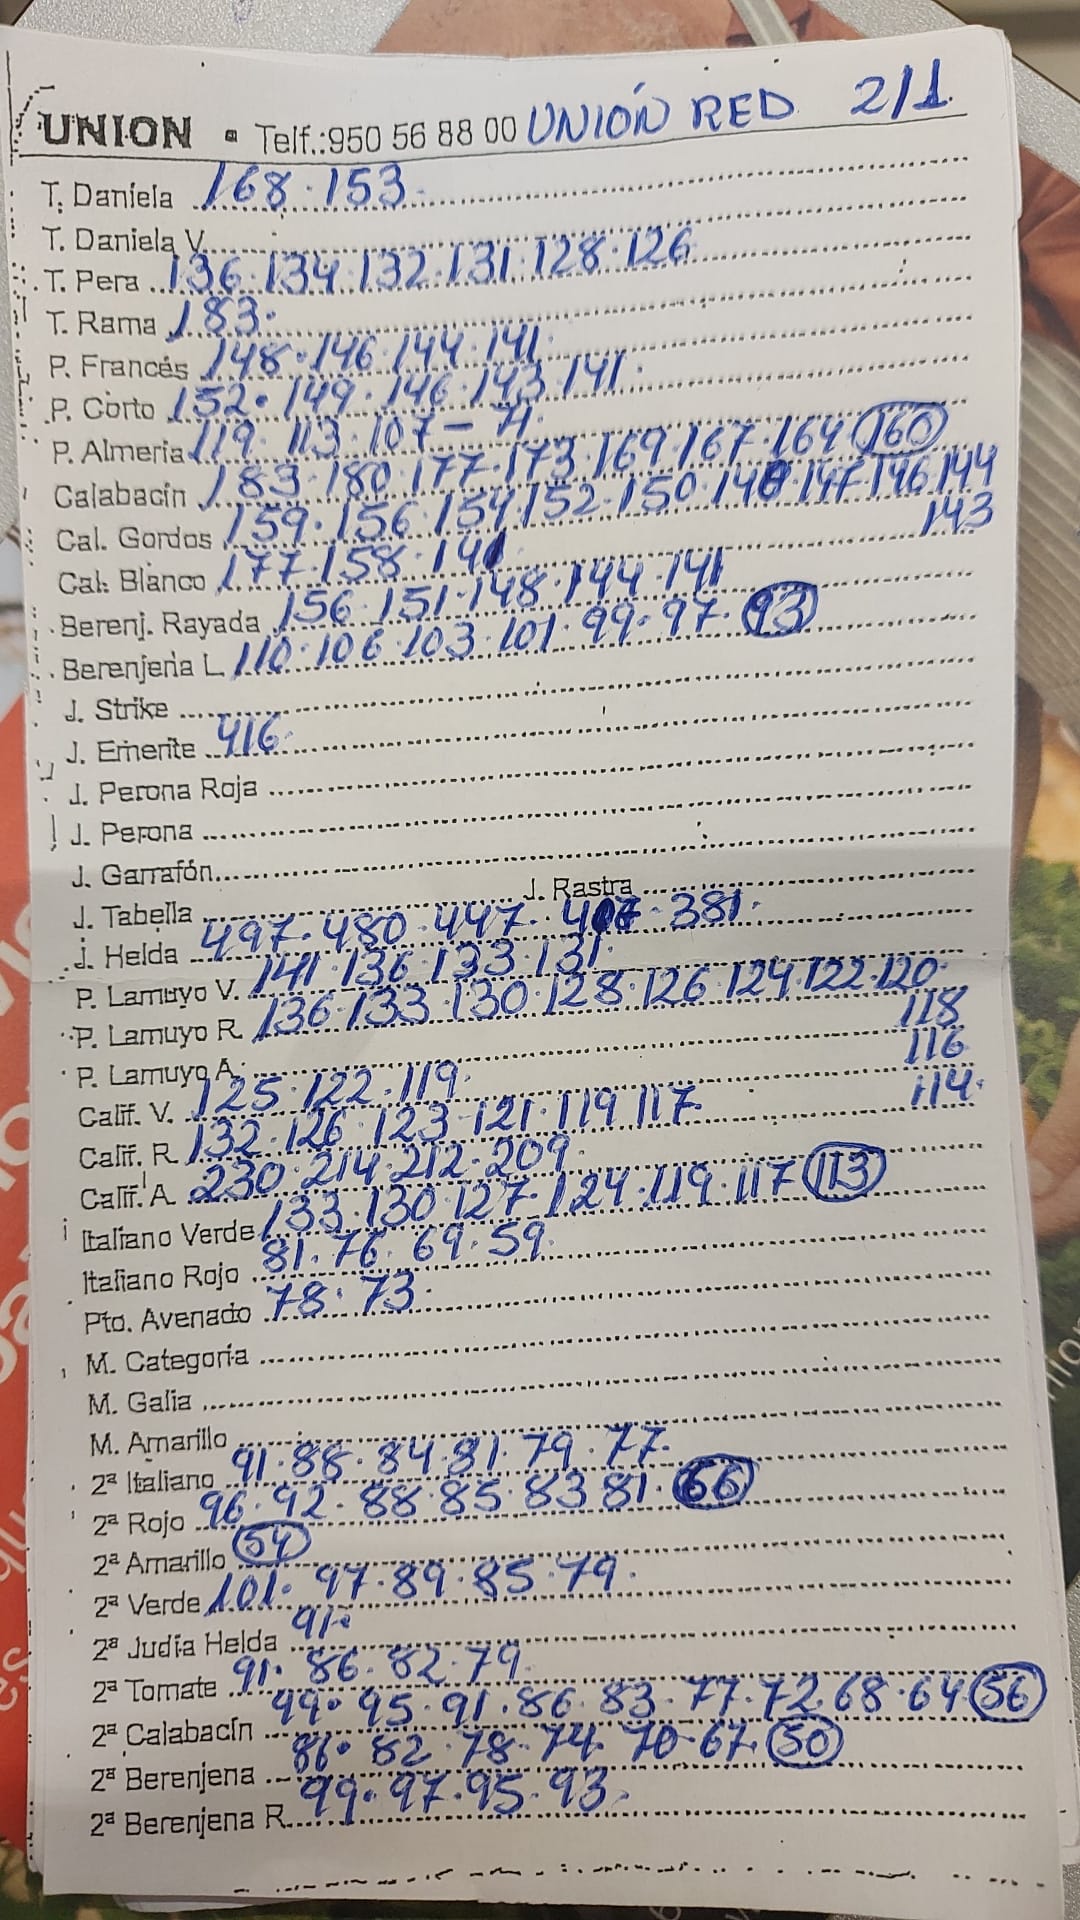 UNION - Telf.:950 56 88 00 UNIÓN RED 2/1
T. Daniela 168. 153.
T. Daniela V.
T. Pera 136. 134. 132. 131. 128. 126
T. Rama 183.
P. Francés 148. 146. 144. 141.
P. Corto 152. 149. 146. 143. 141.
P. Almeria 119. 113. 107 -
Calabacín 183. 180. 177. 173. 169. 167. 164 160
Cal. Gordos 159. 156. 154. 152. 150. 148. 147. 146. 144
143
Cal. Blanco 177. 158. 141
Berenj. Rayada 156. 151. 148. 144. 141
Berenjena L. 110. 106. 103. 101. 99. 97. 93
J. Strike
J. Emerite 416.
J. Perona Roja
J. Perona
J. Garrafón
J. Tabella J. Rastra
J. Helda 497. 480. 447. 407. 381.
P. Lamuyo V. 141. 136. 133. 131.
P. Lamuyo R. 136. 133. 130. 128. 126. 124. 122. 120.
118
P. Lamuyo A.
116
Calif. V. 125. 122. 119.
114.
Calif. R. 132. 126. 123. 121. 119. 117.
Calif. A. 230. 214. 212. 209.
Italiano Verde 133. 130. 127. 124. 119. 117 113
Italiano Rojo 81. 76. 69. 59.
Pto. Avenado 78. 73.
M. Categoria
M. Galia
M. Amarillo
2ª Italiano 91. 88. 84. 81. 79. 77.
2ª Rojo 96. 92. 88. 85. 83. 81. 66
2ª Amarillo 54
2ª Verde 101. 97. 89. 85. 79.
2ª Judía Helda 91.
2ª Tomate 91. 86. 82. 79.
2ª Calabacín 99. 95. 91. 86. 83. 77. 72. 68. 64. 56
2ª Berenjena 86. 82. 78. 74. 70. 67. 50
2ª Berenjena R. 99. 97. 95. 93.